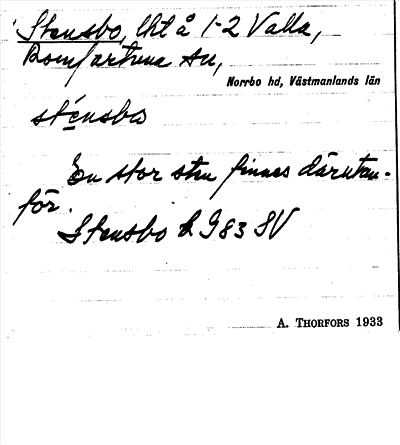 Stensbo, lht å 1-2 Valla,
Romfartuna sn,
Norrbo hd, Västmanlands län
stensbo
En stor sten finnes därutan-
för.
Stensbo k 983 SV
A. THORFORS 1933